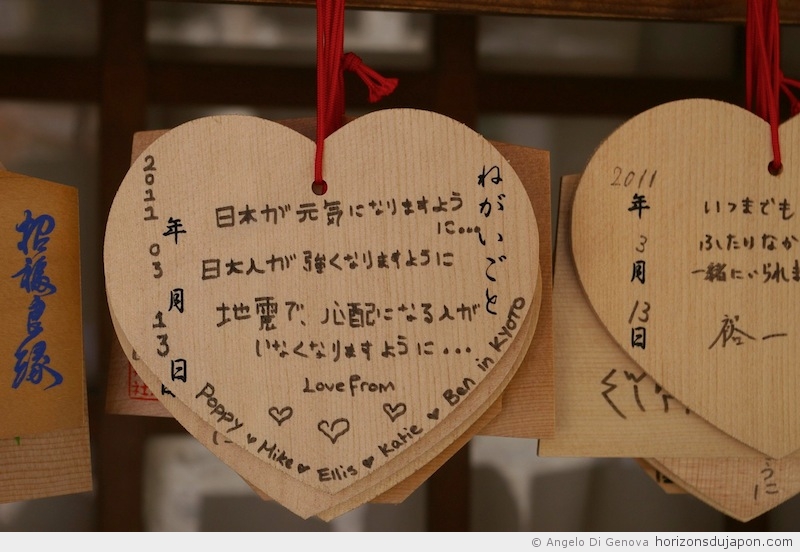 招福良縁
ねがいごと
日本が元気になりますよう
に...
日大人が強くなりますように
地震で、心配になる人が
いなくなりますように...
Love From
Poppy ♥ Mike ♥ Ellis ♥ Katie ♥ Ben in KYOTO
2011年03月13日
いつまでも
ふたりなか
一緒にいられま
裕一
2011年3月13日
うに
© Angelo Di Genova horizonsdujapon.com